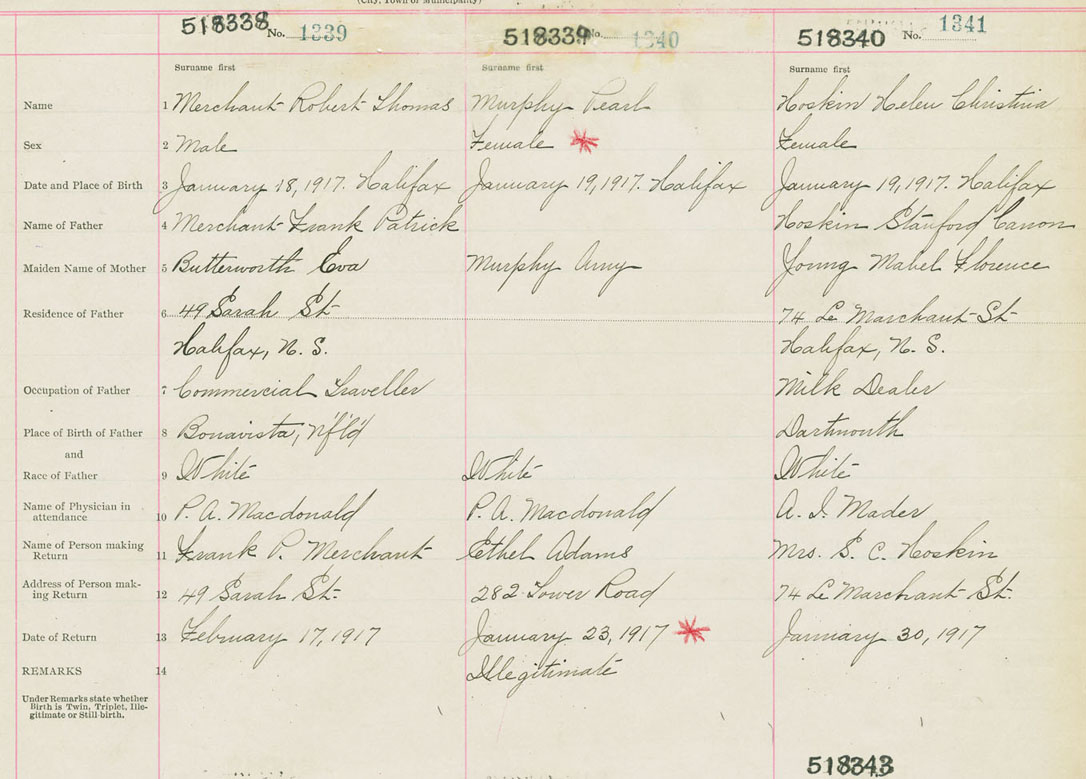 (City, Town or Municipality)
518338 No. 1339
518339 No. 1340
518340 No. 1341
Surname first
Surname first
Surname first
Name 1 Merchant Robert Thomas Murphy Pearl Hoskin Helen Christina
Sex 2 Male Female Female
Date and Place of Birth 3 January 18, 1917. Halifax January 19, 1917. Halifax January 19, 1917. Halifax
Name of Father 4 Merchant Frank Patrick Hoskin Stanford Canon
Maiden Name of Mother 5 Butterworth Eva Murphy Amy Young Mabel Florence
Residence of Father 6 49 Sarah St 74 Le Marchant St
Halifax, N. S. Halifax, N. S.
Occupation of Father 7 Commercial Traveller Milk Dealer
Place of Birth of Father 8 Bonavista, N'f'l'd Dartmouth
and
Race of Father 9 White White White
Name of Physician in
attendance 10 P. A. Macdonald P. A. Macdonald A. I. Mader
Name of Person making
Return 11 Frank P. Merchant Ethel Adams Mrs. S. C. Hoskin
Address of Person mak-
ing Return 12 49 Sarah St. 282 Tower Road 74 Le Marchant St.
Date of Return 13 February 17, 1917 January 23, 1917 January 30, 1917
REMARKS 14 Illegitimate
Under Remarks state whether
Birth is Twin, Triplet, Ille-
gitimate or Still-birth.
518343